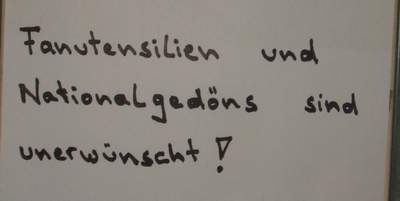 Fanutensilien und
Nationalgedöns sind
unerwünscht!